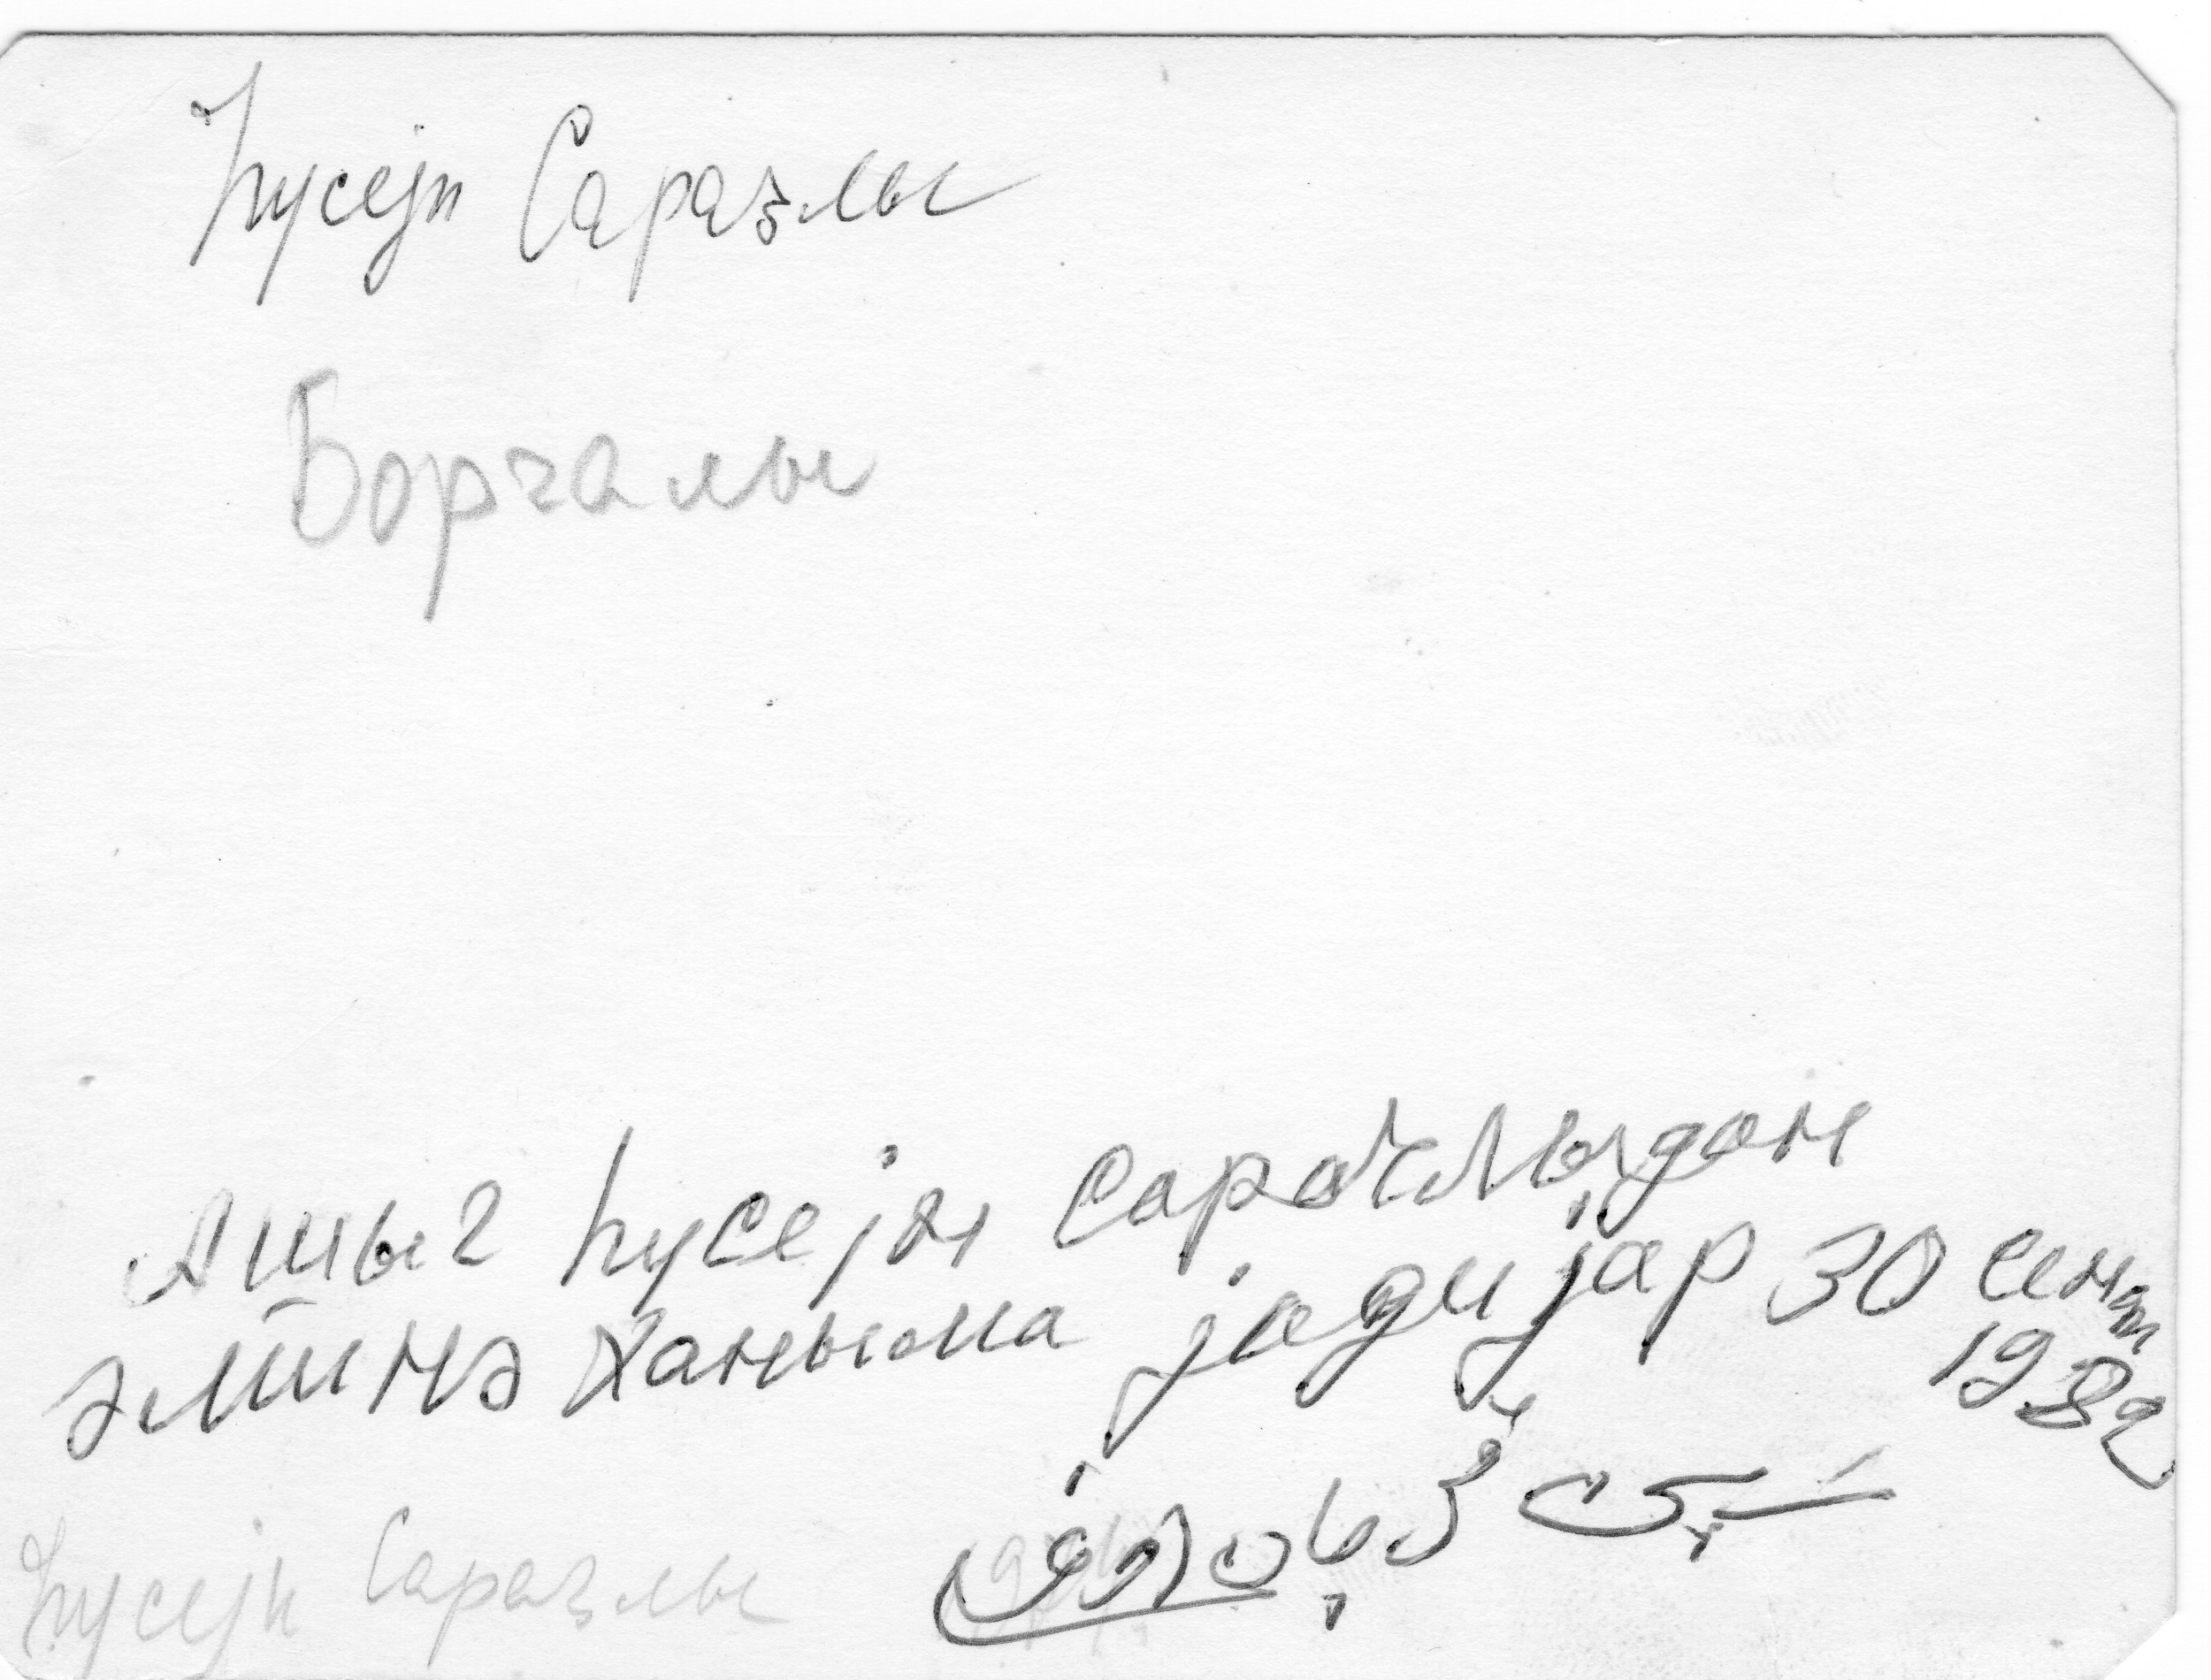 Һусејн Саразлы
Борчалы
Ашыг Һусејн Сарачлыдан
Әминә Ханыма јадијар 30 сент
1982
Һусејн Саразлы